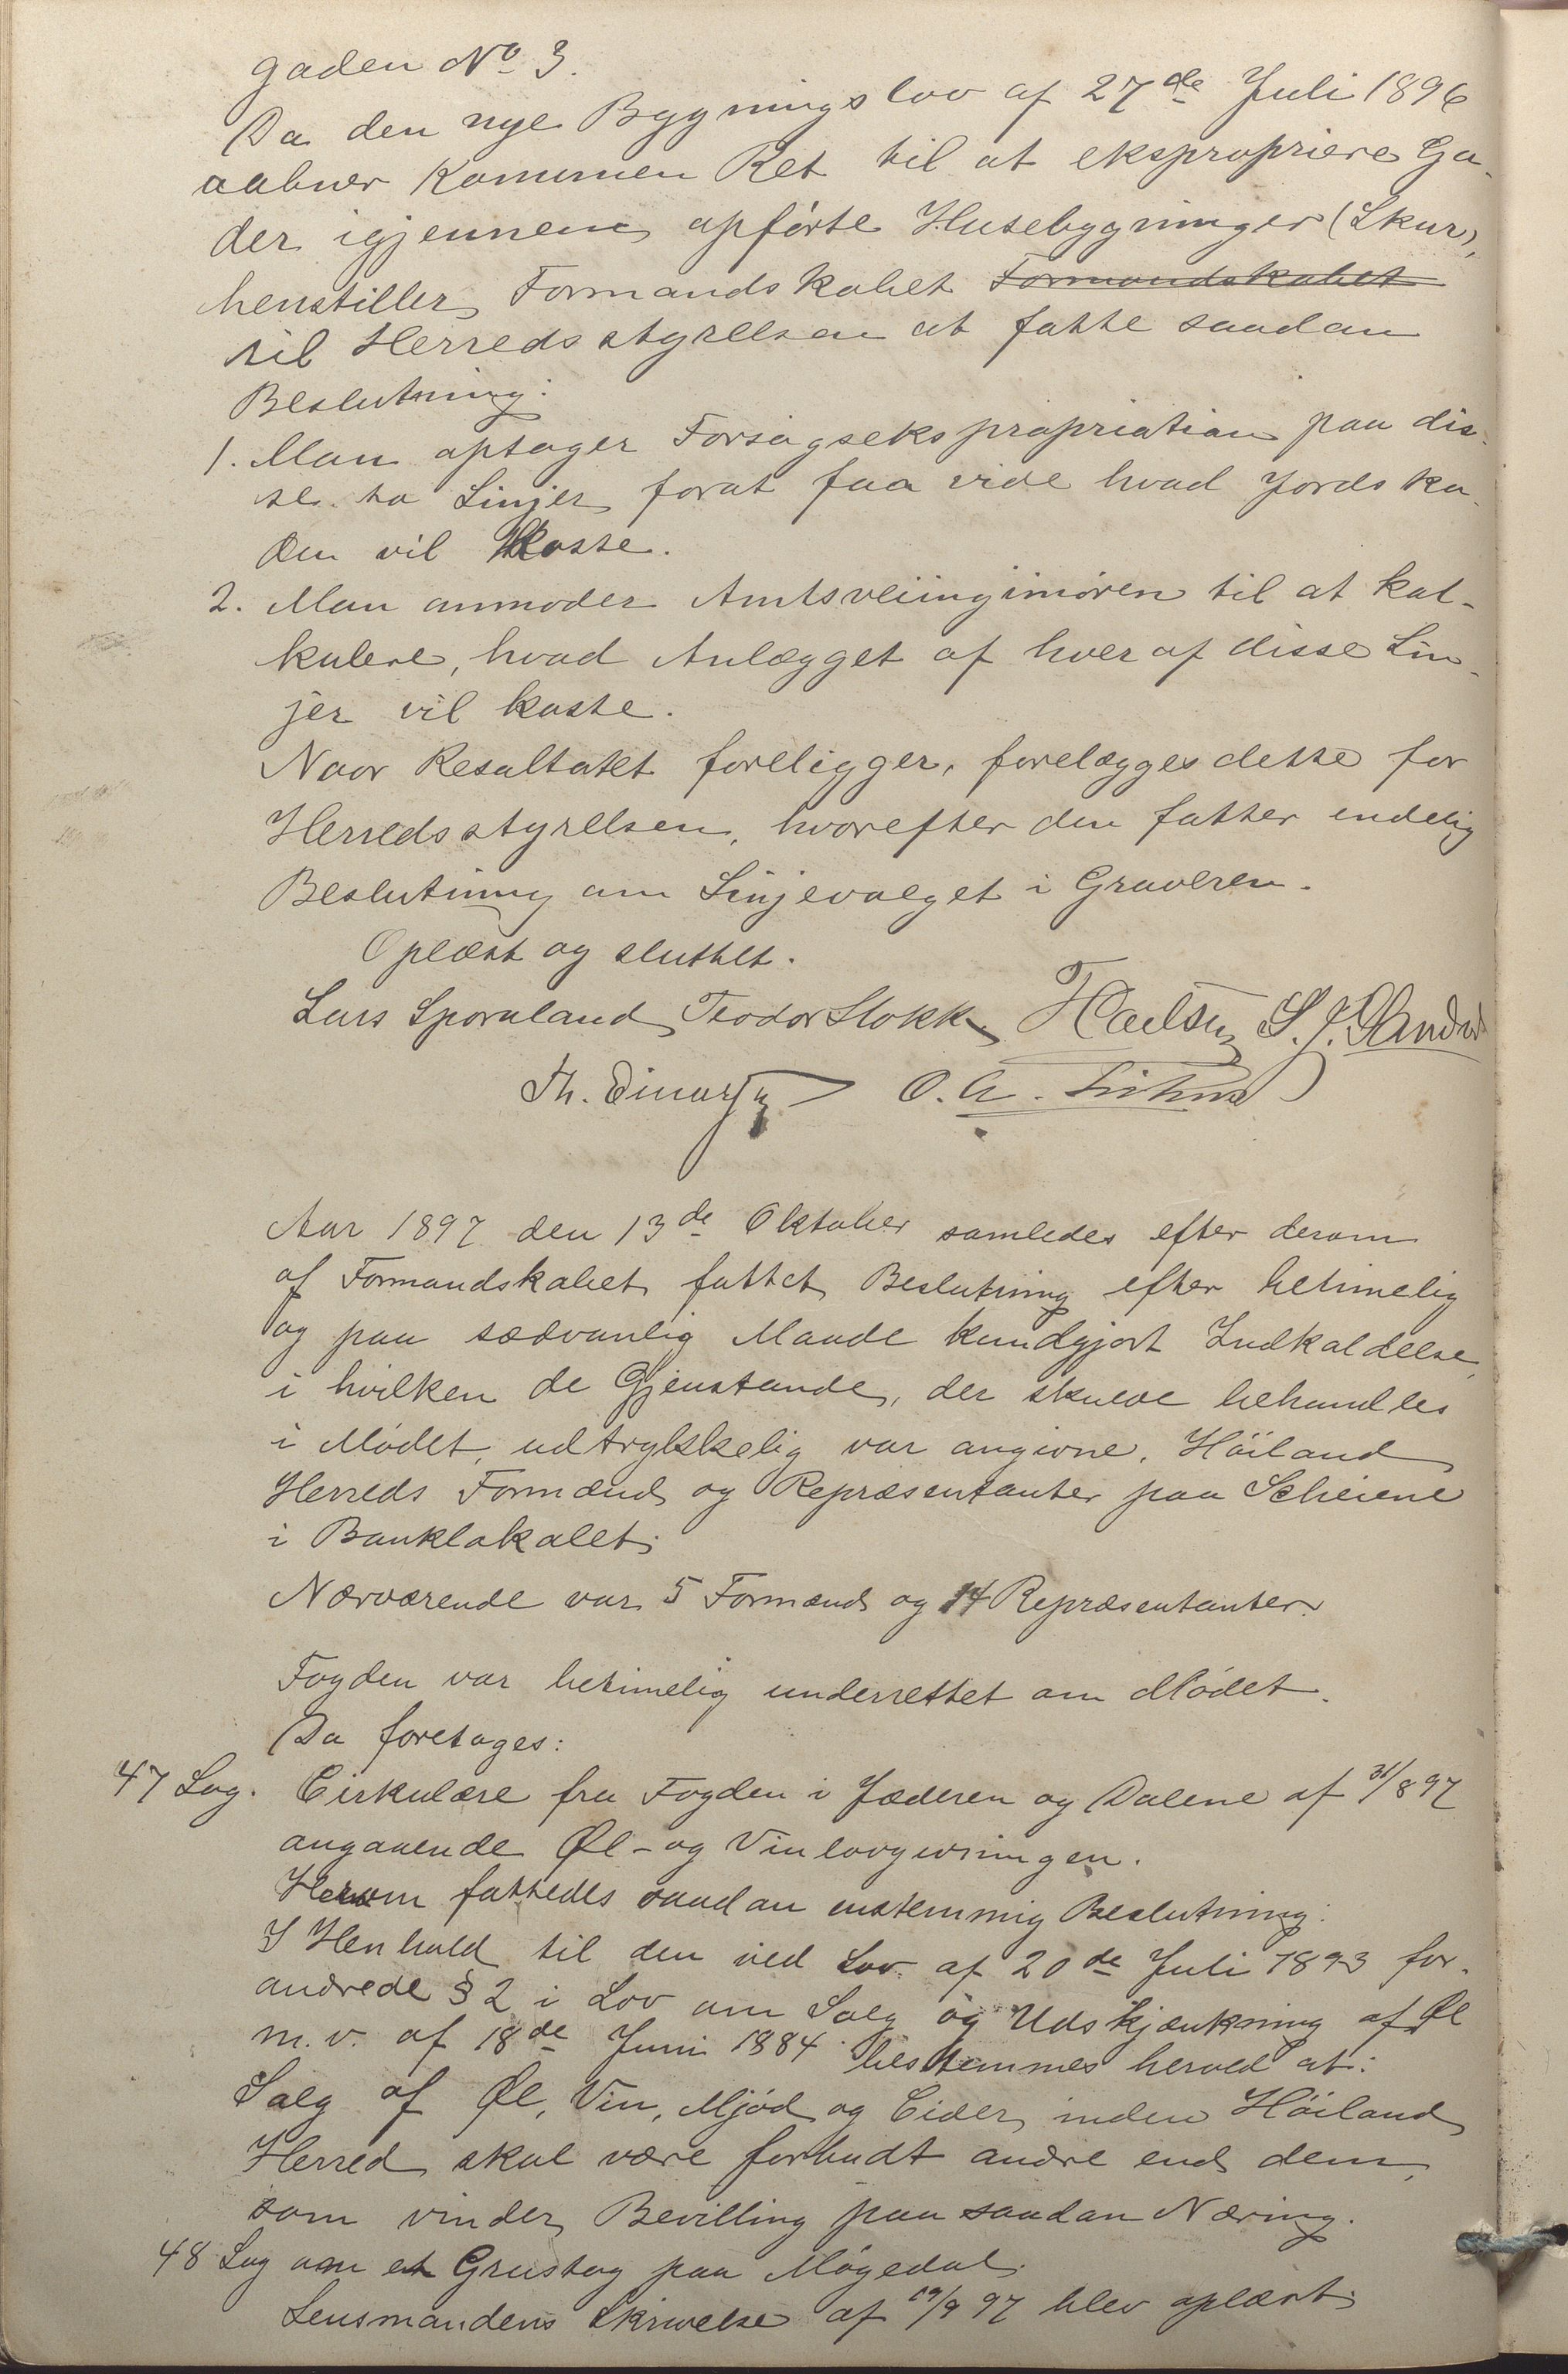 gaden No 3.
Da den nye Bygningslov af 27de Juli 1896
aabner Kommunen Ret til at ekspropriere Ga-
der igjennem opførte Husebygninger (Skur),
henstiller Formandskabet Formandskabet
til Herredsstyrelsen at fatte saadan
Beslutning:
1. Man optager Forsøgsekspropriation paa dis-
se to Linjer forat faa vide hvad Jordska-
den vil koste.
2. Man anmoder Amtsveiinginiøren til at kal-
kulere, hvad Anlægget af hver af disse Lin-
jer vil koste.
Naar Resultatet foreligger, forelægges dette for
Herredsstyrelsen, hvorefter den fatter endelig
Beslutning om Linjevalget i Graveren.
Oplæst og sluttet.
Lars Sporaland Teodor Stokke
Th. Einarsen O. A.
Aar 1897 den 13de Oktober samledes efter derom
af Formandskabet fattet Beslutning efter betimelig
og paa sædvanlig Maade kundgjort Indkaldelse,
i hvilken de Gjenstande, der skulde behandles
i Mødet, udtrykkelig var angivne, Høiland
Herreds Formænd og Repræsentanter paa Scheiene
i Banklokalet.
Nærværende var 5 Formænd og 14 Repræsentanter.
Fogden var betimelig underrettet om Mødet.
Da foretages:
47 Sag. Cirkulære fra Fogden i Jæderen og Dalene af 31/8 97
angaaende Øl- og Vinlovgivningen.
Herom fattedes saadan enstemmig Beslutning:
I Henhold til den ved Lov af 20de Juli 1893 for-
andrede § 2 i Lov om Salg og Udskjænkning af Øl
m.v. af 18de Juni 1884 bestemmes herved at:
Salg af Øl, Vin, Mjød og Cider inden Høiland
Herred skal være forbudt andre end dem,
som vinder Bevilling paa saadan Næring.
48 Sag om et Grustag paa Møgedal.
Lensmandens Skrivelse af 19/9 97 blev oplæst